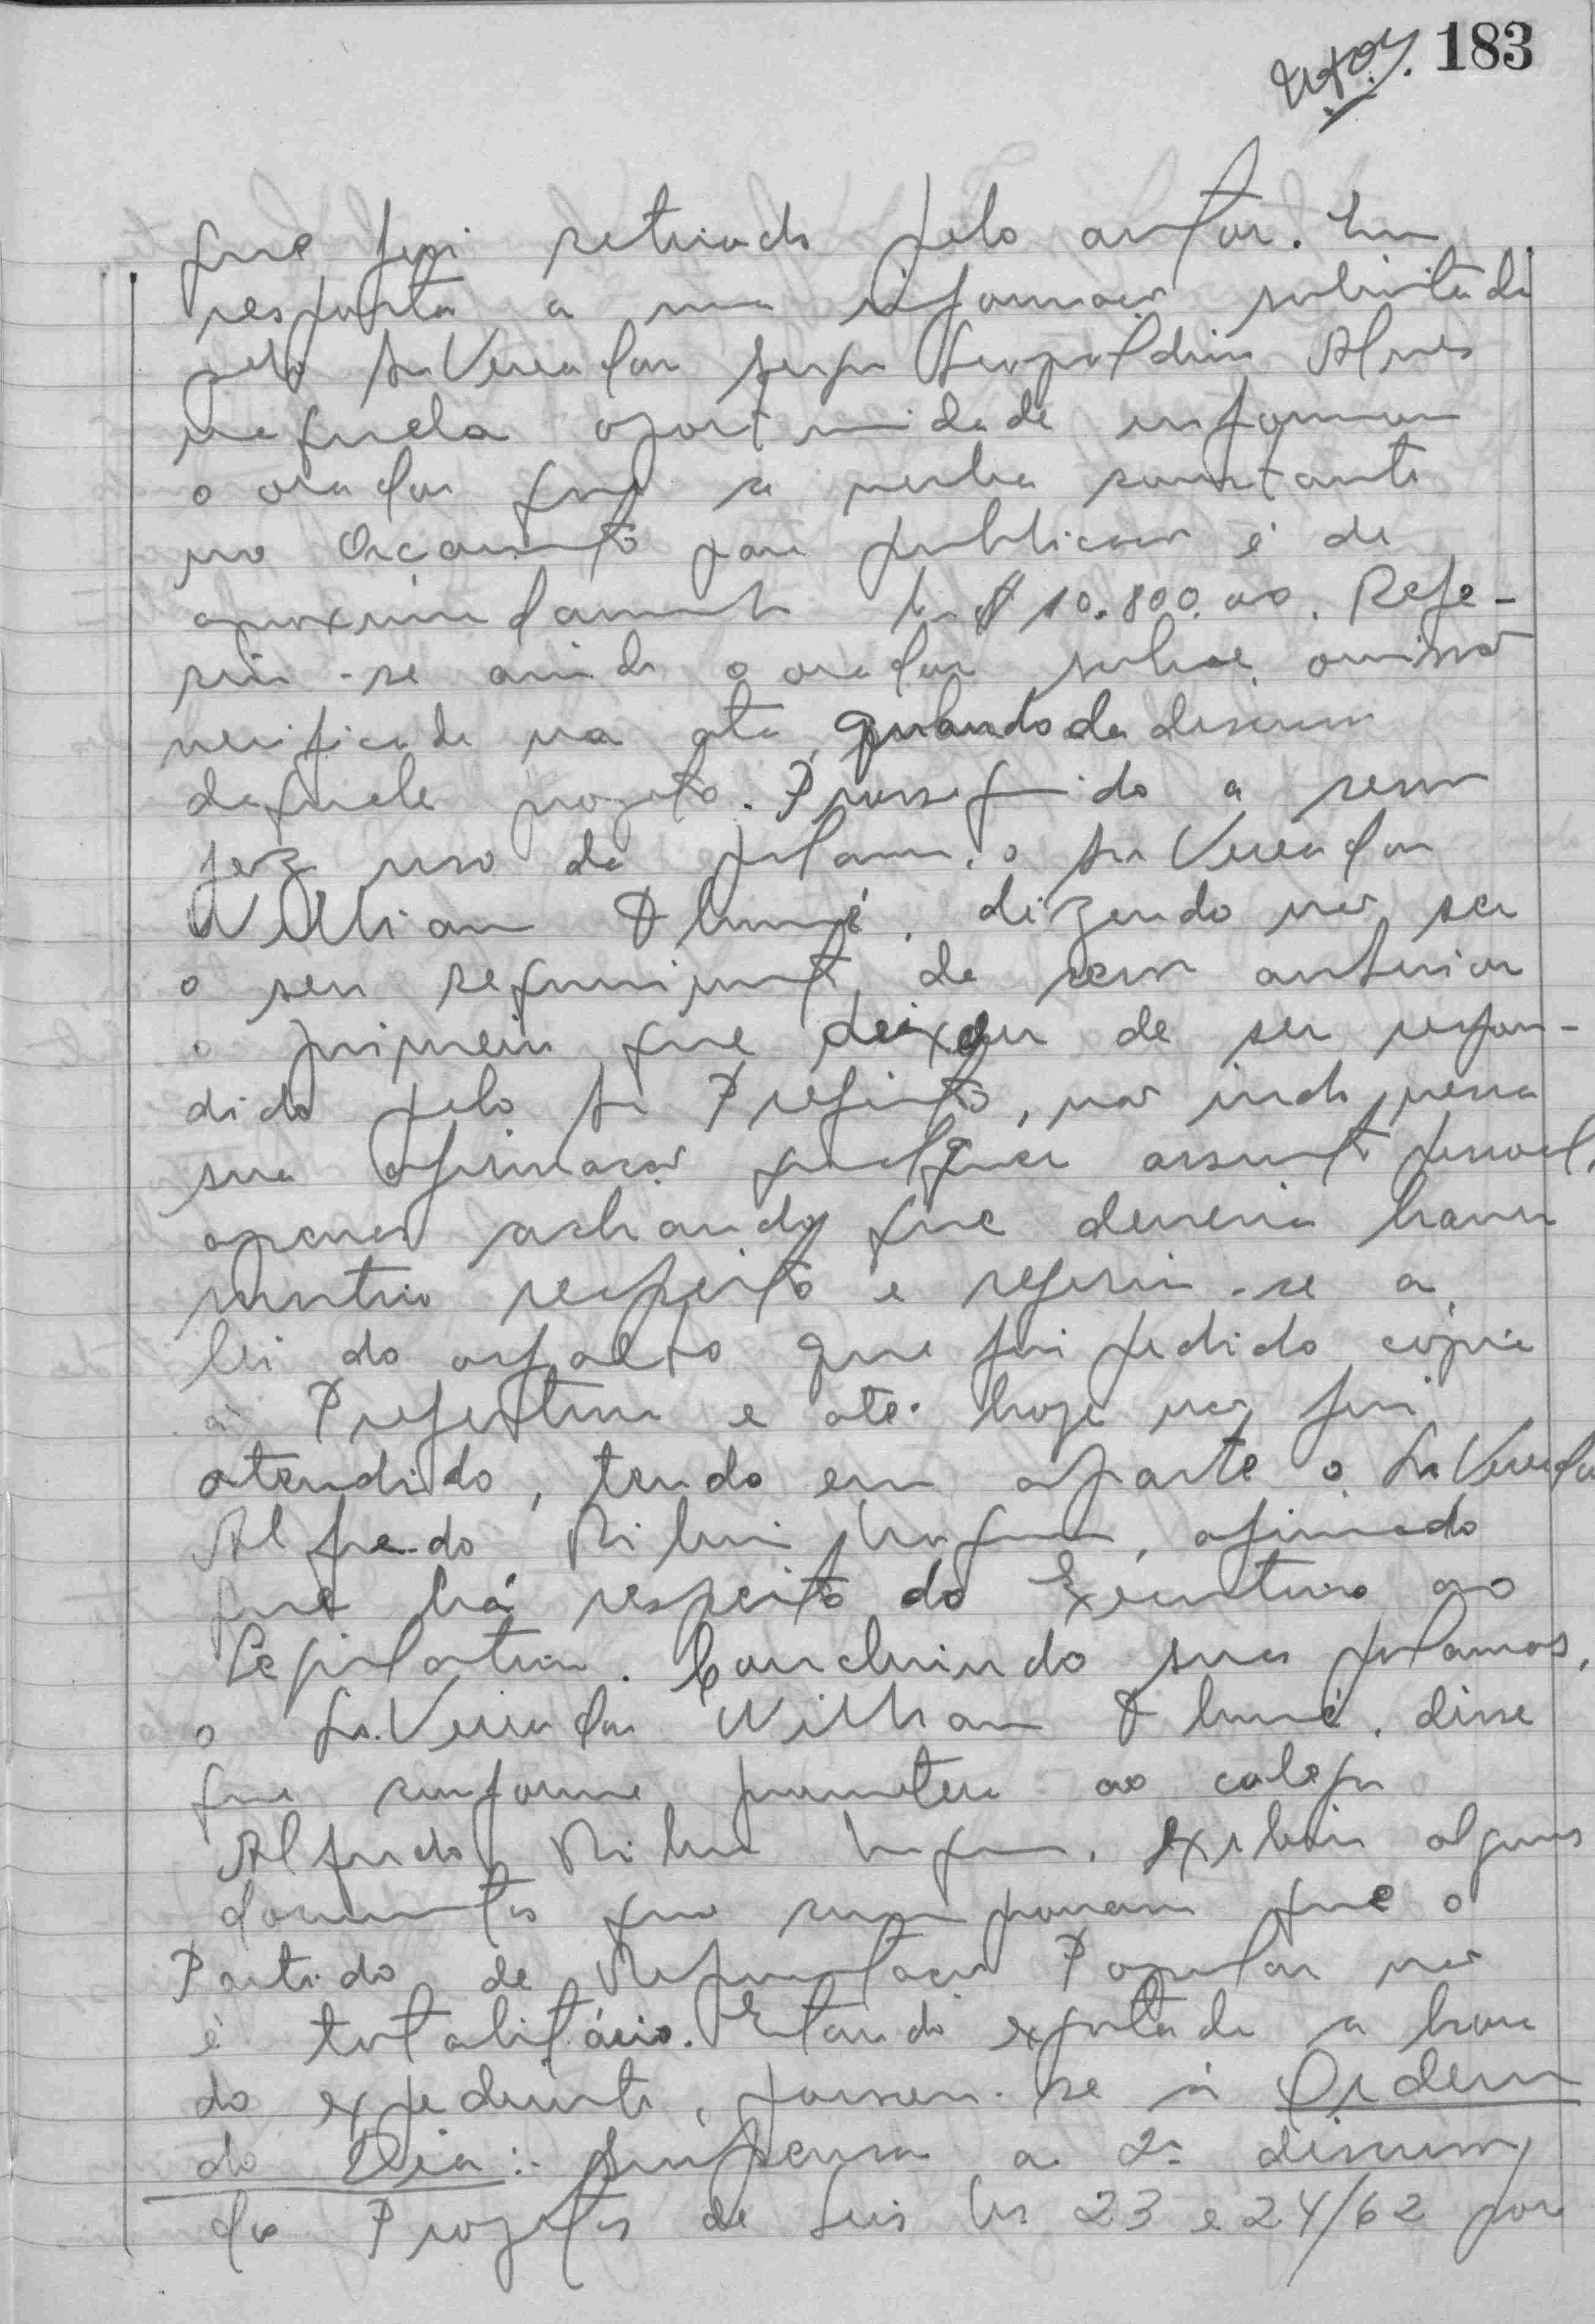 183
que foi retirado pelo autor. Em
resposta a uma informação solicitada
pelo Sr. Vereador Leopoldino Alves
naquela oportunidade informou
o orador que a verba constante
no Orçamento para publicação é de
aproximadamente Cr$ 10.800.00. Refe-
riu-se ainda o orador sobre omissão
verificada na ata, quando da discussão
daquele projeto. Prosseguindo a sessão
fez uso da palavra, o Sr Vereador
Willian, dizendo não ser
o seu requerimento da sessão anterior
o primeiro que deixou de ser respon-
dido pelo Sr Prefeito, não indo nessa
sua afirmação qualquer assunto pessoal,
apenas achando que deveria haver
mutuo respeito e referiu-se a
lei do asfalto que foi pedido cópia
à Prefeitura e até hoje não foi
atendido, tendo em aparte o Sr Vereador
Alfredo, afirmado
que há respeito do Executivo ao
Legislativo. Concluindo suas palavras,
o Sr. Vereador Willian, disse
que conforme prometera ao colega
Alfredo, exibiu alguns
documentos que comprovam que o
Partido de Representação Popular não
é totalitário. Estando esgotada a hora
do expediente, passou-se à Ordem
do Dia:- Suspensa a 2ª discussão
dos Projetos de Leis Ns 23 e 24/62 por